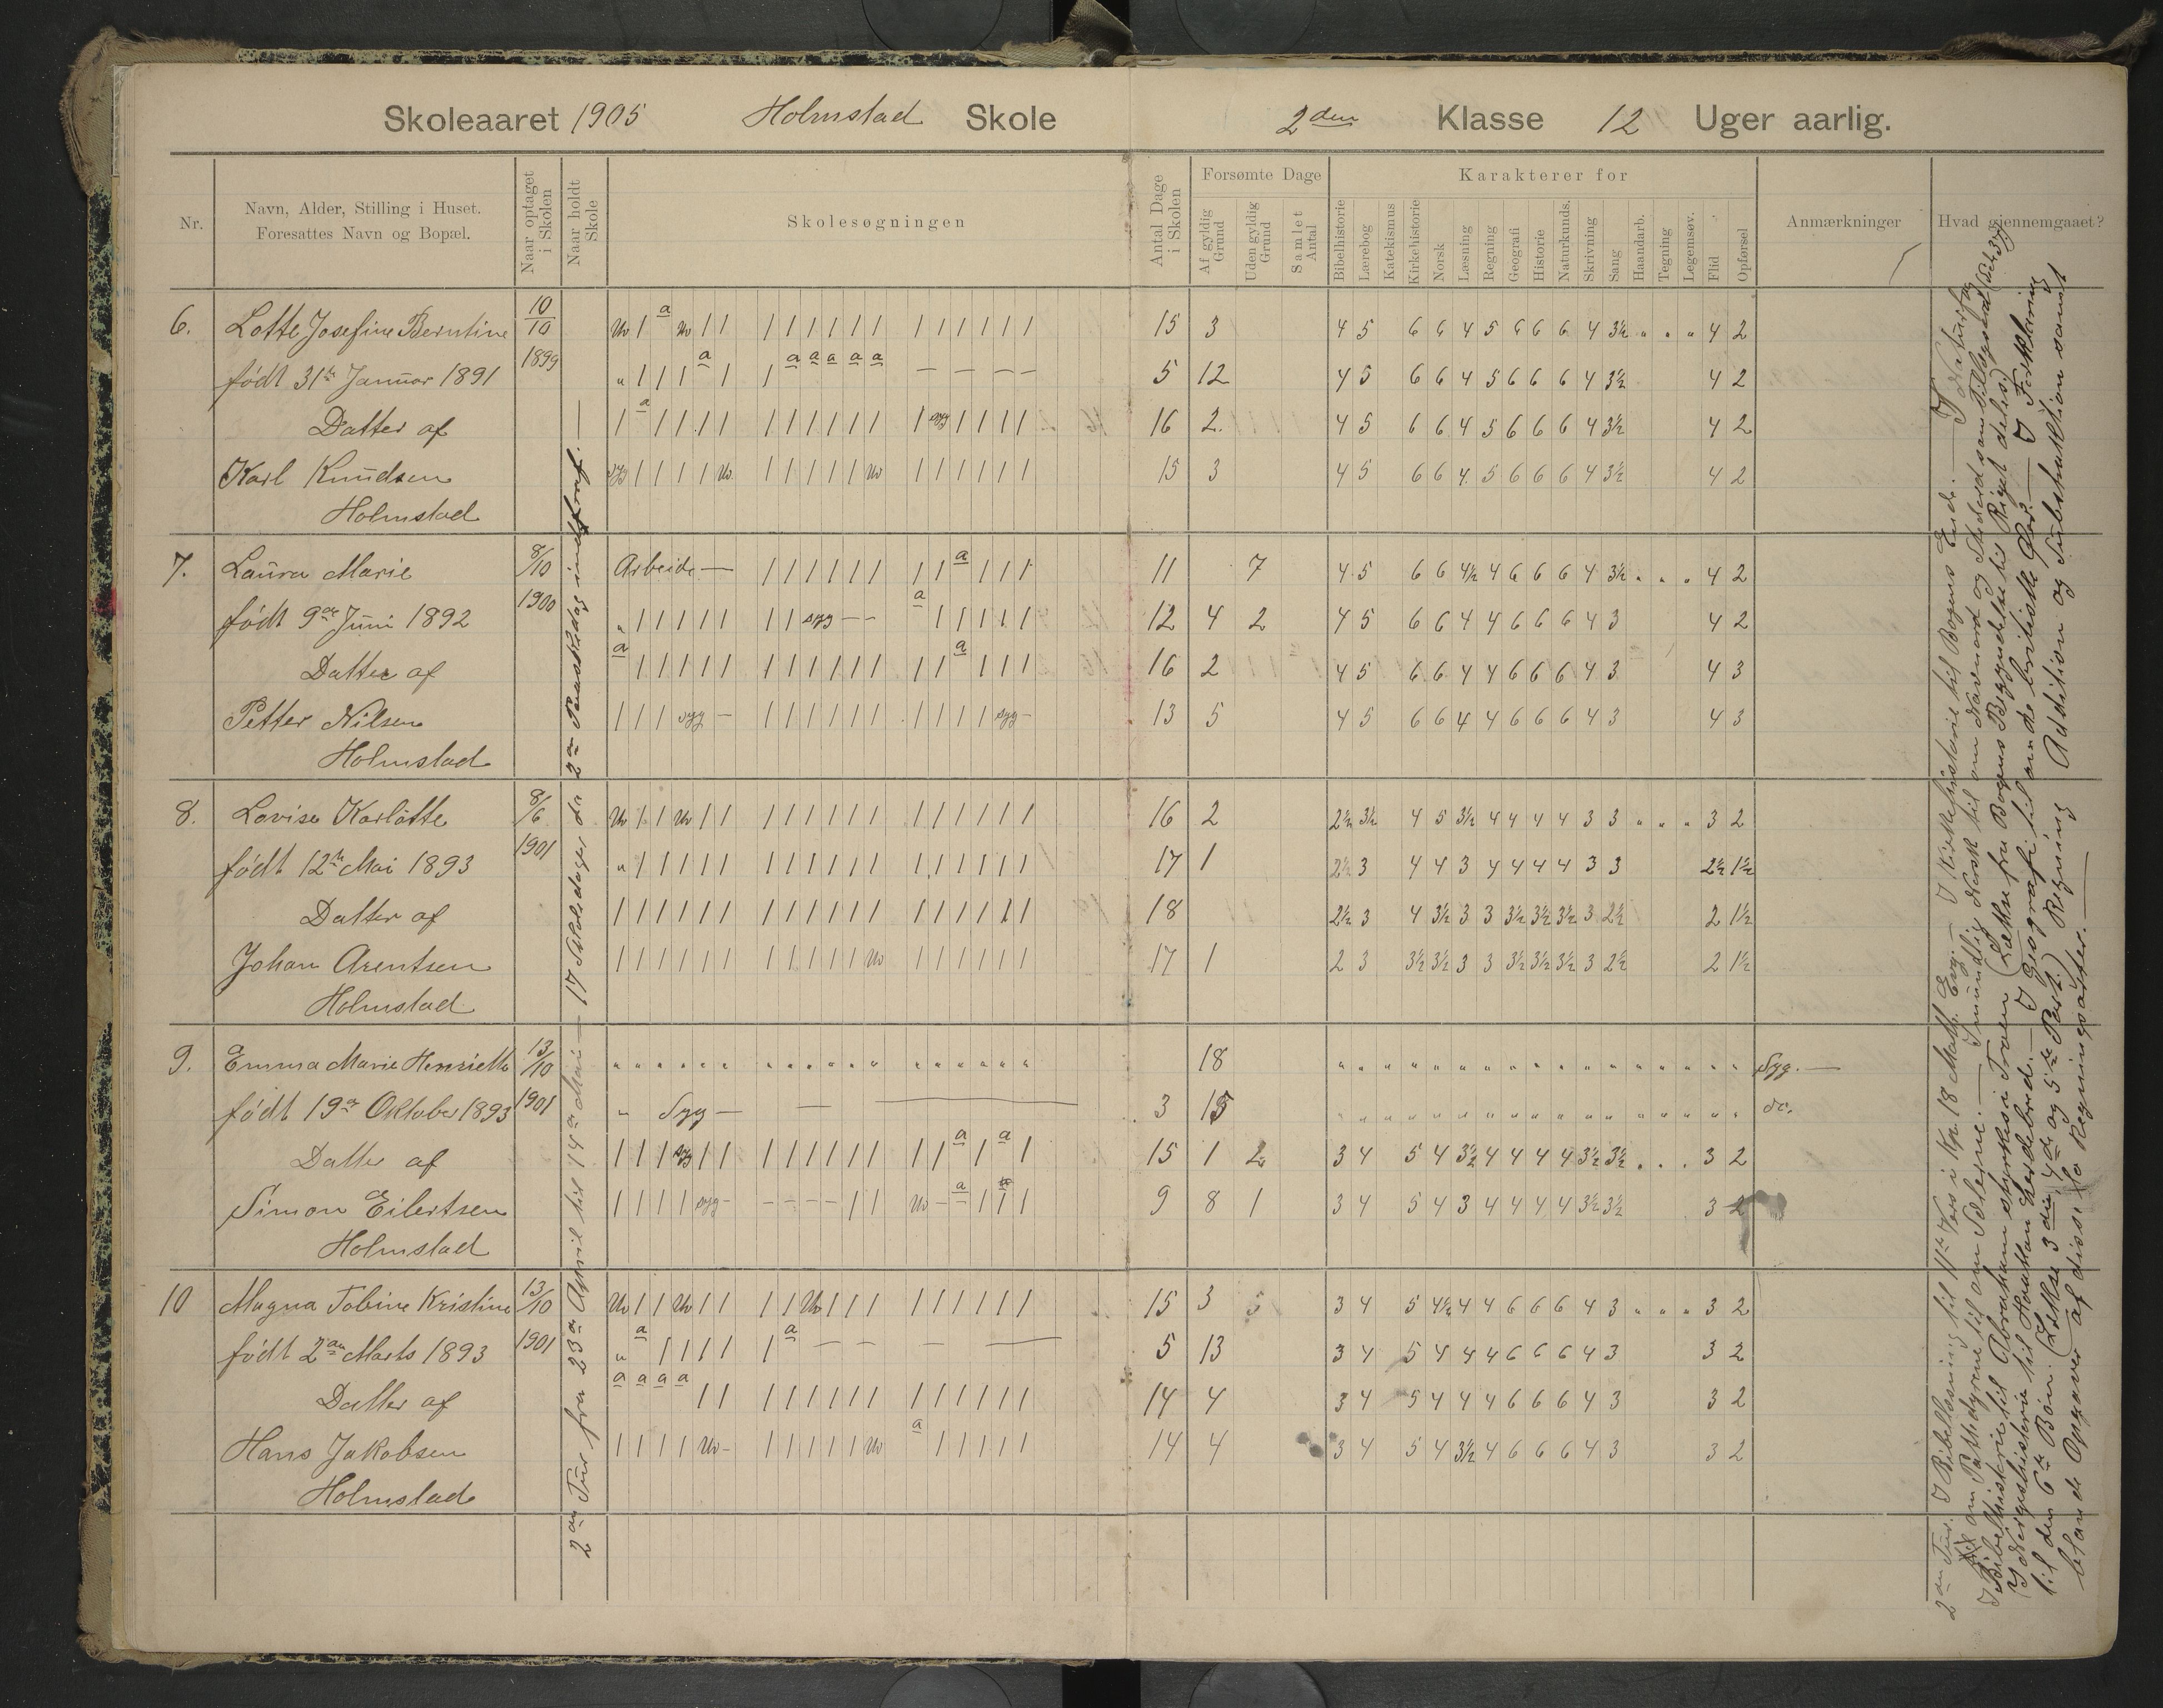 Skoleaaret 1905 Holmstad Skole 2den Klasse 12 Uger aarlig.
Nr.
Navn, Alder, Stilling i Huset.
Foresattes Navn og Bopæl.
Naar optaget i Skolen
Naar holdt Skole
Skolesøgningen
Antal Dage i Skolen
Forsømte Dage
Af gyldig Grund
Uden gyldig Grund
Samlet Antal
Karakterer for
Bibelhistorie
Lærebog
Katekismus
Kirkehistorie
Norsk
Læsning
Regning
Geografi
Historie
Naturkunds.
Skrivning
Sang
Haandarb.
Tegning
Legemsøv.
Flid
Opførsel
Anmærkninger
Hvad gjennemgaaet?
6. Lotte Josefine Berntine 10/10 Uv / a Uv / / / / / / / / / / / / / / 15 3 4 5 6 6 4 5 6 6 6 4 3½ " " " 4 2
født 31te Januar 1891 1899 " / / / a / / a a a a a — — — — 5 12 4 5 6 6 4 5 6 6 6 4 3½ 4 2
Datter af / a / / / / / / / / / / / syg / / / / 16 2. 4 5 6 6 4 5 6 6 6 4 3½ 4 2
Karl Knudsen syg / / / / Uv. / / / / / Uv / / / / / / 15 3 4 5 6 6 4. 5 6 6 6 4 3½ 4 2
Holmstad
7. Laura Marie 8/10 Arbeide — / / / / / / / / a / / / 11 7 4 5 6 6 4½ 4 6 6 6 4 3½ " " " 4 2
født 9de Juni 1892 1900 " / / / / / / / syg — — a / / / / / 12 4 2 4 5 6 6 4 4 6 6 6 4 3 4 2
Datter af a / / / / / / / / / / / / / a / / / 16 2 4 5 6 6 4 4 6 6 6 4 3 4 3
Petter Nilsen / / / syg — / / / / / / / / / / syg — 13 5 4 5 6 6 4 4 6 6 6 4 3 4 3
Holmstad
8. Lovise Karlotte 8/6 Uv / / Uv / / / / / / / / / / / / / / 16 2 2½ 3½ 4 5 3½ 4 4 4 4 3 3 " " " 3 2
født 12te Mai 1893 1901 " / / / / / / / / / / / / / / / / / 17 1 2½ 3 4 4 3 4 4 4 4 3 3 2½ 1½
Datter af / / / / / / / / / / / / / / / / / / 18 2½ 3 4 3½ 3 3 3½ 3½ 3½ 3 2½ 2 1½
Johan Arentsen / / / / / / / / / / / Uv / / / / / / 17 1 2 3 3½ 3½ 3 3 3½ 3½ 3½ 3 2½ 2 1½
Holmstad
9. Emma Marie Henriette 13/10 " " " " " " " " " " " " " " " " " " 18 " " " " " " " " " " " " " " " " " Syg. —
født 19de Oktober 1893 1901 " Syg — — — 3 15 " " " " " " " " " " " " " " " " " do.
Datter af / / / syg / / / / / / / / / / a / a / 15 1 2 3 4 5 4 3½ 4 4 4 4 3½ 3½ . . . 3 2
Simon Eilertsen / / / / syg — — — — — / / Uv — a / / / 9 8 1 3 4 5 4 3 4 4 4 4 3½ 3½ 3 2
Holmstad
10 Magna Tobine Kristine 13/10 Uv / / Uv / / / / Uv / / / / / / / / / 15 3 3 4 5 4½ 4 4 6 6 6 4 3 " " " 3 2
født 2den Marts 1893 1901 " a / / / / / a — — — — 5 13 3 4 5 4 4 4 6 6 6 4 3 3 2
Datter af a a a a / / / / / / / / / / / / / / 14 4 3 4 5 4 4 4 6 6 6 4 3 3 2
Hans Jakobsen / / / / Uv — / / / / / Uv a / / / / / 14 4 3 4 5 4 3½ 4 6 6 6 4 3 3 2
Holmstad
2den Tur fra 23de April til 14de Mai — 17 Skoledager da 2den Paaskedag —
2den Tur. I Bibellæsning til 11te Vers i Kp. 18 Matth. Evg. — I Kirkehistorie til Bogens Ende. — I Naturfag
om Pattedyrene til om Sælerne. — I mundlig Norsk til om Navneord og
I Bibelhistorie til Abraham styrkes i Troen (Læthse fra Bogens Begyndelse til Riget deles)
I Norgeshistorie til Jonathan — I Geografi til om de britiske Øer. — I Forklaring
til den 6te Bøn. (Læthse 3die 4de og 5te Part.) Regning Addition og Subtraktion samt
blande Opgaver af disse to Regningsarter. —